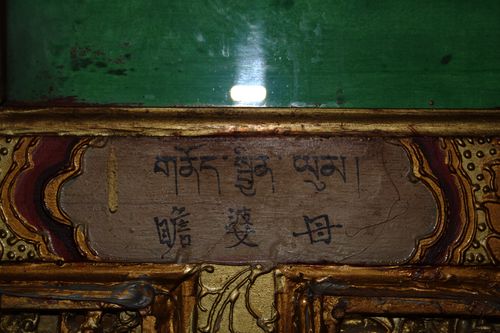 གནོད་སྦྱིན་ཡུམ།
瞻婆母